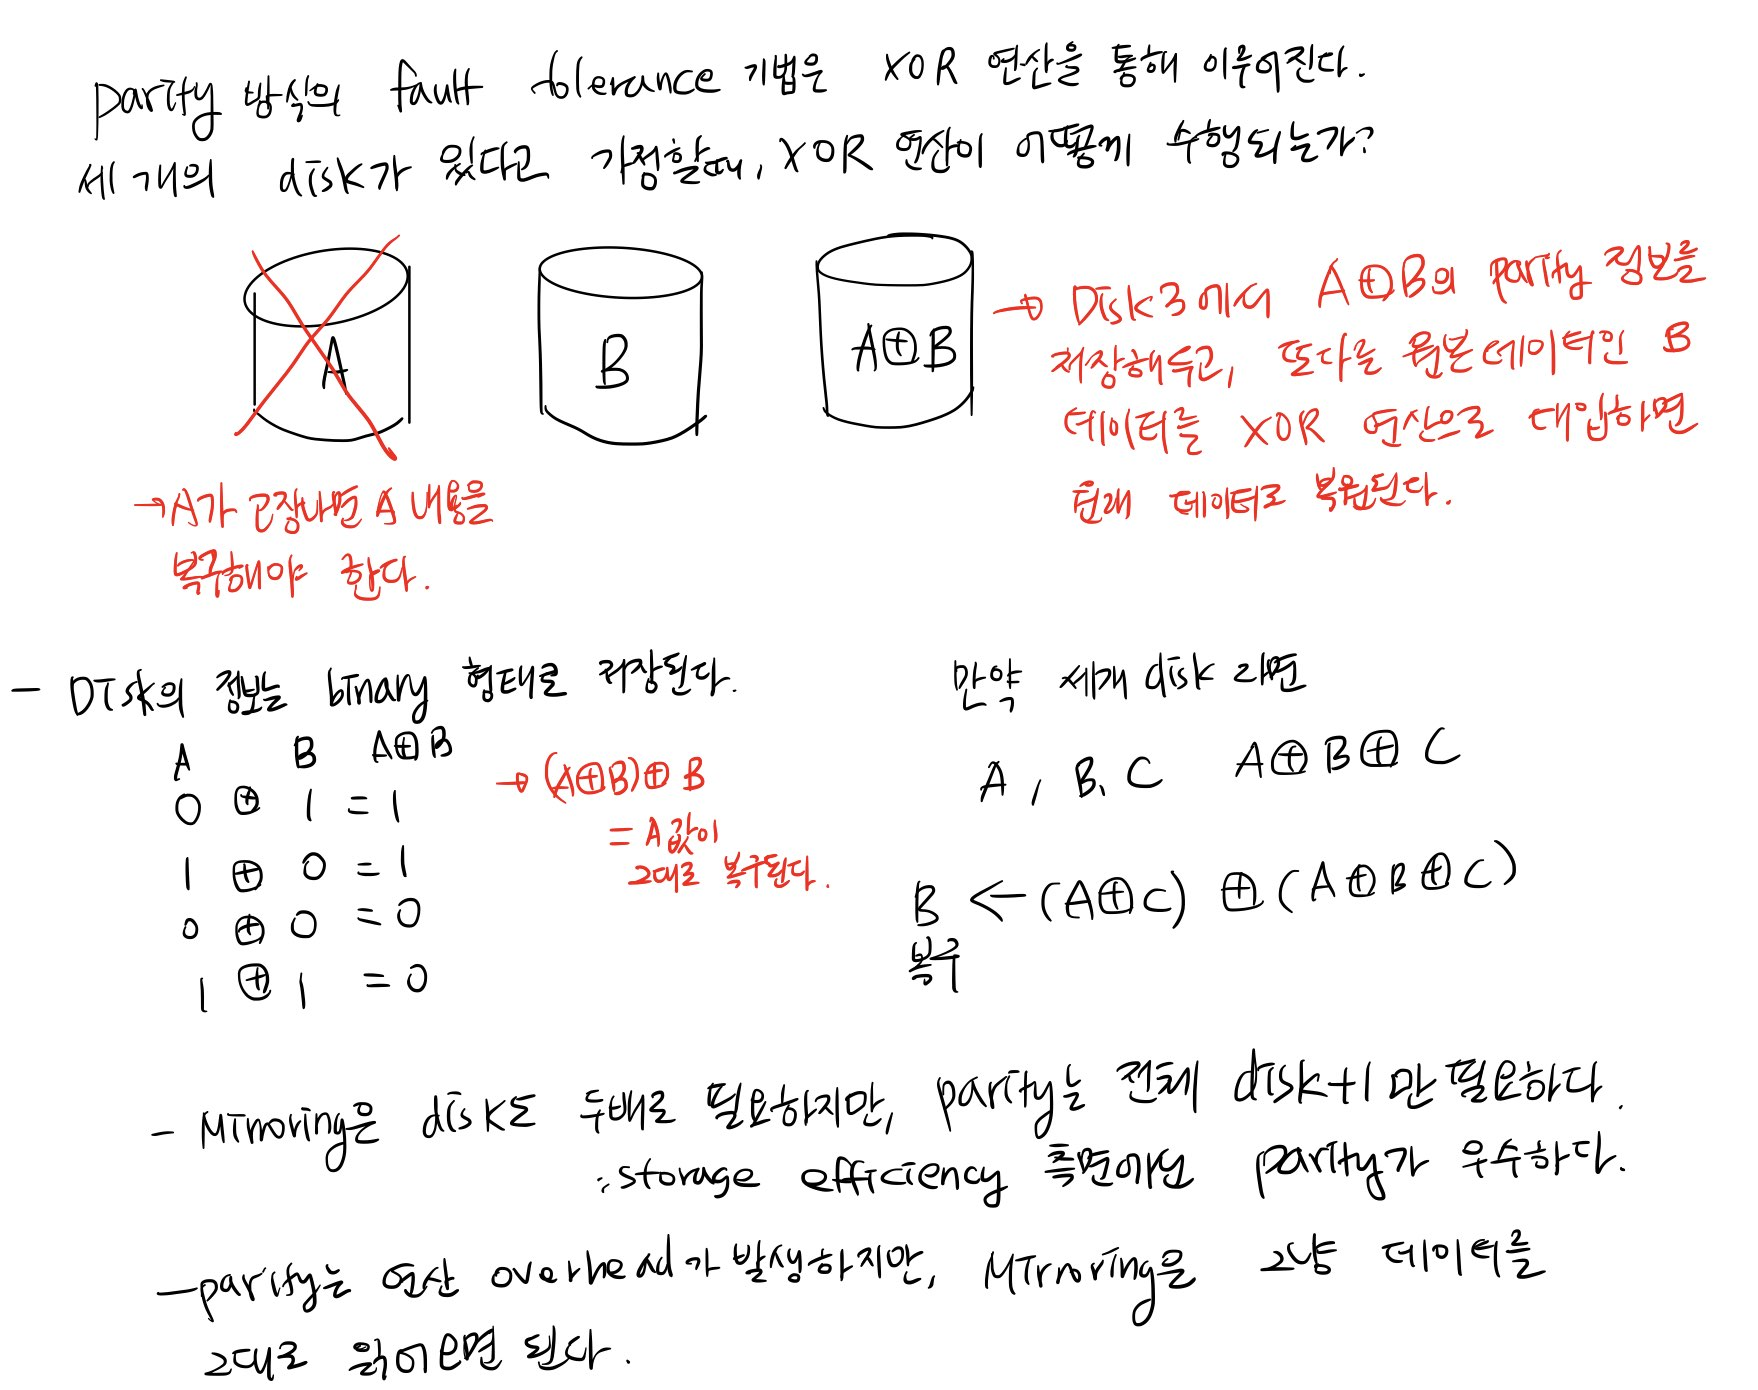 parity 방식의 fault tolerance 기법은 XOR 연산을 통해 이루어진다.
세 개의 disk가 있다고 가정할때, XOR 연산이 어떻게 수행되는가?
A
B
A⊕B
→ Disk3에서 A⊕B의 parity 정보를
저장해두고, 또다른 원본데이터인 B
데이터를 XOR 연산으로 대입하면
원래 데이터로 복원된다.
→A가 고장나면 A 내용을
복구해야 한다.
- Disk의 정보는 binary 형태로 저장된다.
A B A⊕B
0 ⊕ 1 = 1
1 ⊕ 0 = 1
0 ⊕ 0 = 0
1 ⊕ 1 = 0
→ (A⊕B)⊕B
= A값이
그대로 복구된다.
만약 세개 disk 라면
A, B, C A⊕B⊕C
B ← (A⊕C) ⊕ (A⊕B⊕C)
복구
- Mirroring은 disk도 두배로 필요하지만, parity는 전체 disk+1만 필요하다.
∴ storage efficiency 측면에선 parity가 우수하다.
- parity는 연산 overhead가 발생하지만, Mirroring은 그냥 데이터를
그대로 읽어오면 된다.